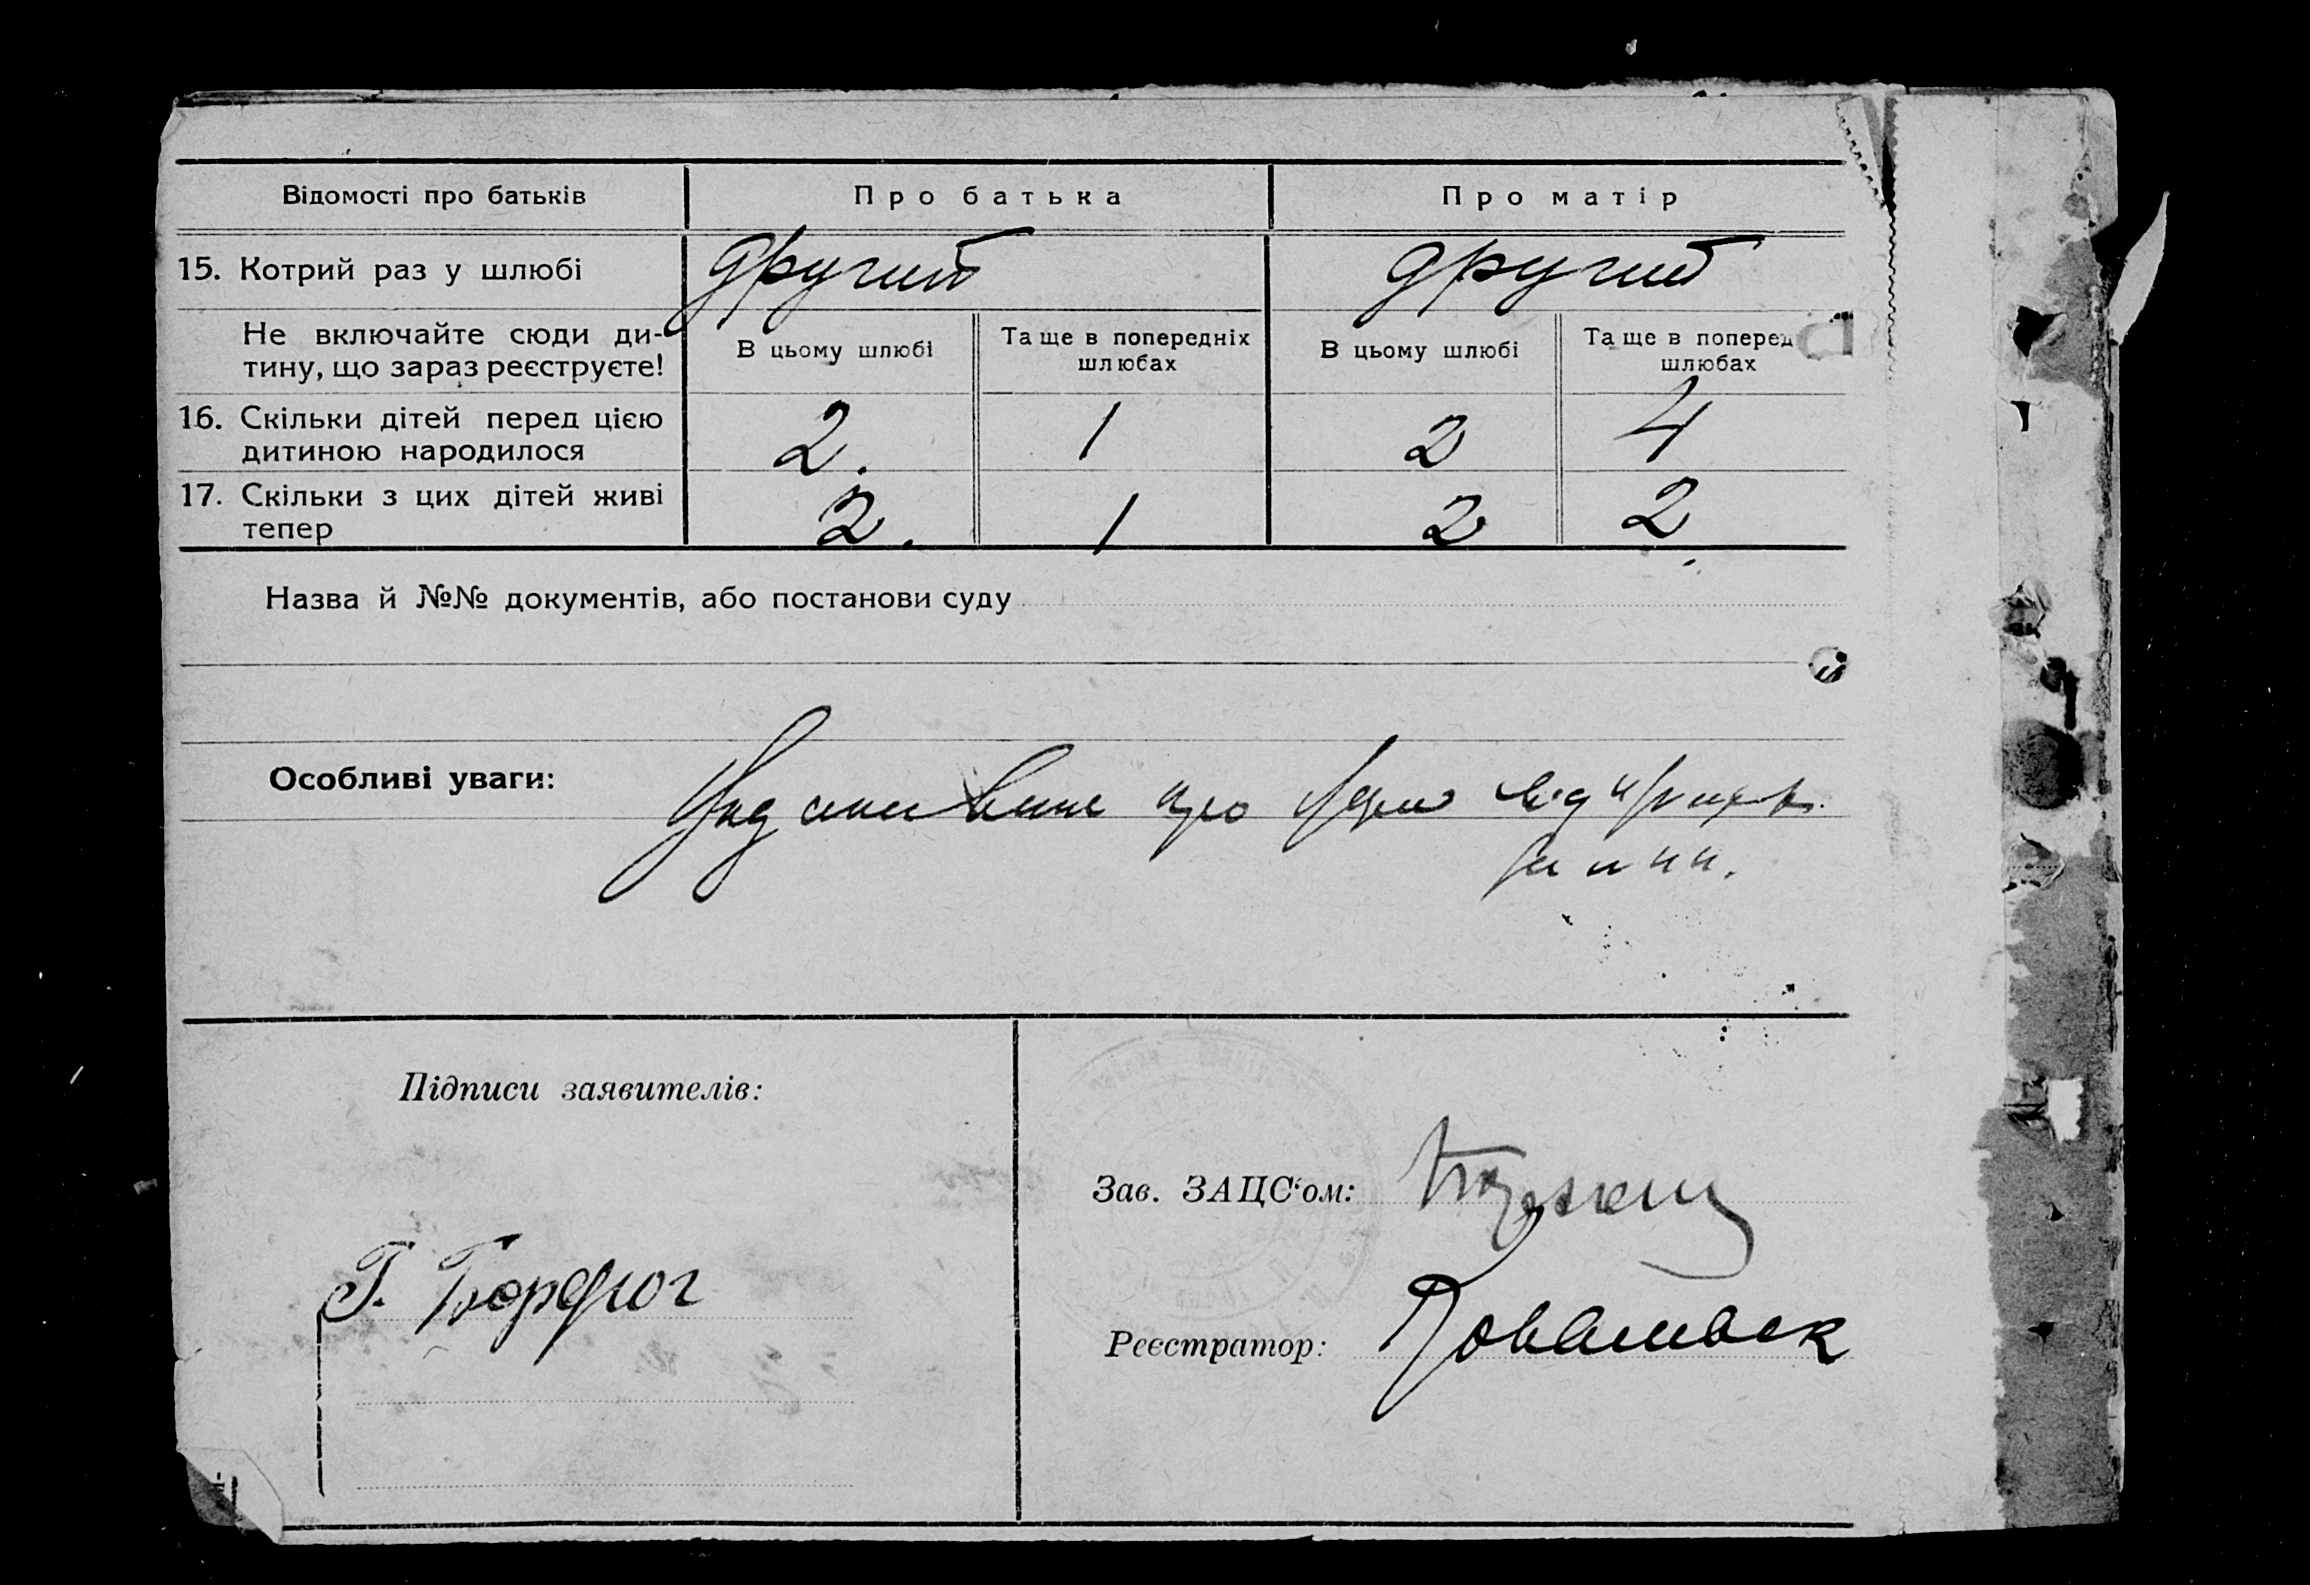 Відомості про батьків Про батька Про матір
15. Котрий раз у шлюбі другий другий
Не включайте сюди ди-
тину, що зараз реєструєте!
В цьому шлюбі
Та ще в попередніх
шлюбах
В цьому шлюбі
Та ще в поперед
шлюбах
16. Скільки дітей перед цією
дитиною народилося
2. 1 2 4
17. Скільки з цих дітей живі
тепер
2. 1 2 2
Назва й №№ документів, або постанови суду
Особливі уваги:
про
Підписи заявителів:
Зав. ЗАЦС'ом:
Г. Бордюг
Реєстратор: